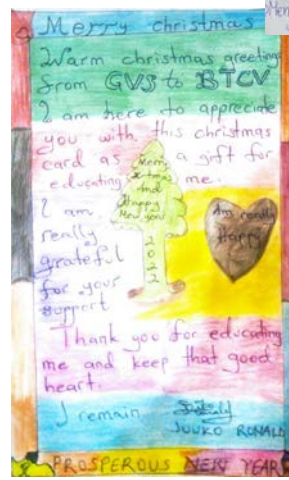 Merry christmas
Warm christmas greetings
from GVS to BTCV
I am here to appreciate
you with this christmas
card as a gift for
educating me.
Merry
X-tmas
And
Happy
New year
2022
I am
really
grateful
for your
support
Am really
Happy
Thank you for educating
me and keep that good
heart.
I remain
JUUKO RONALD
& PROSPEROUS NEW YEAR